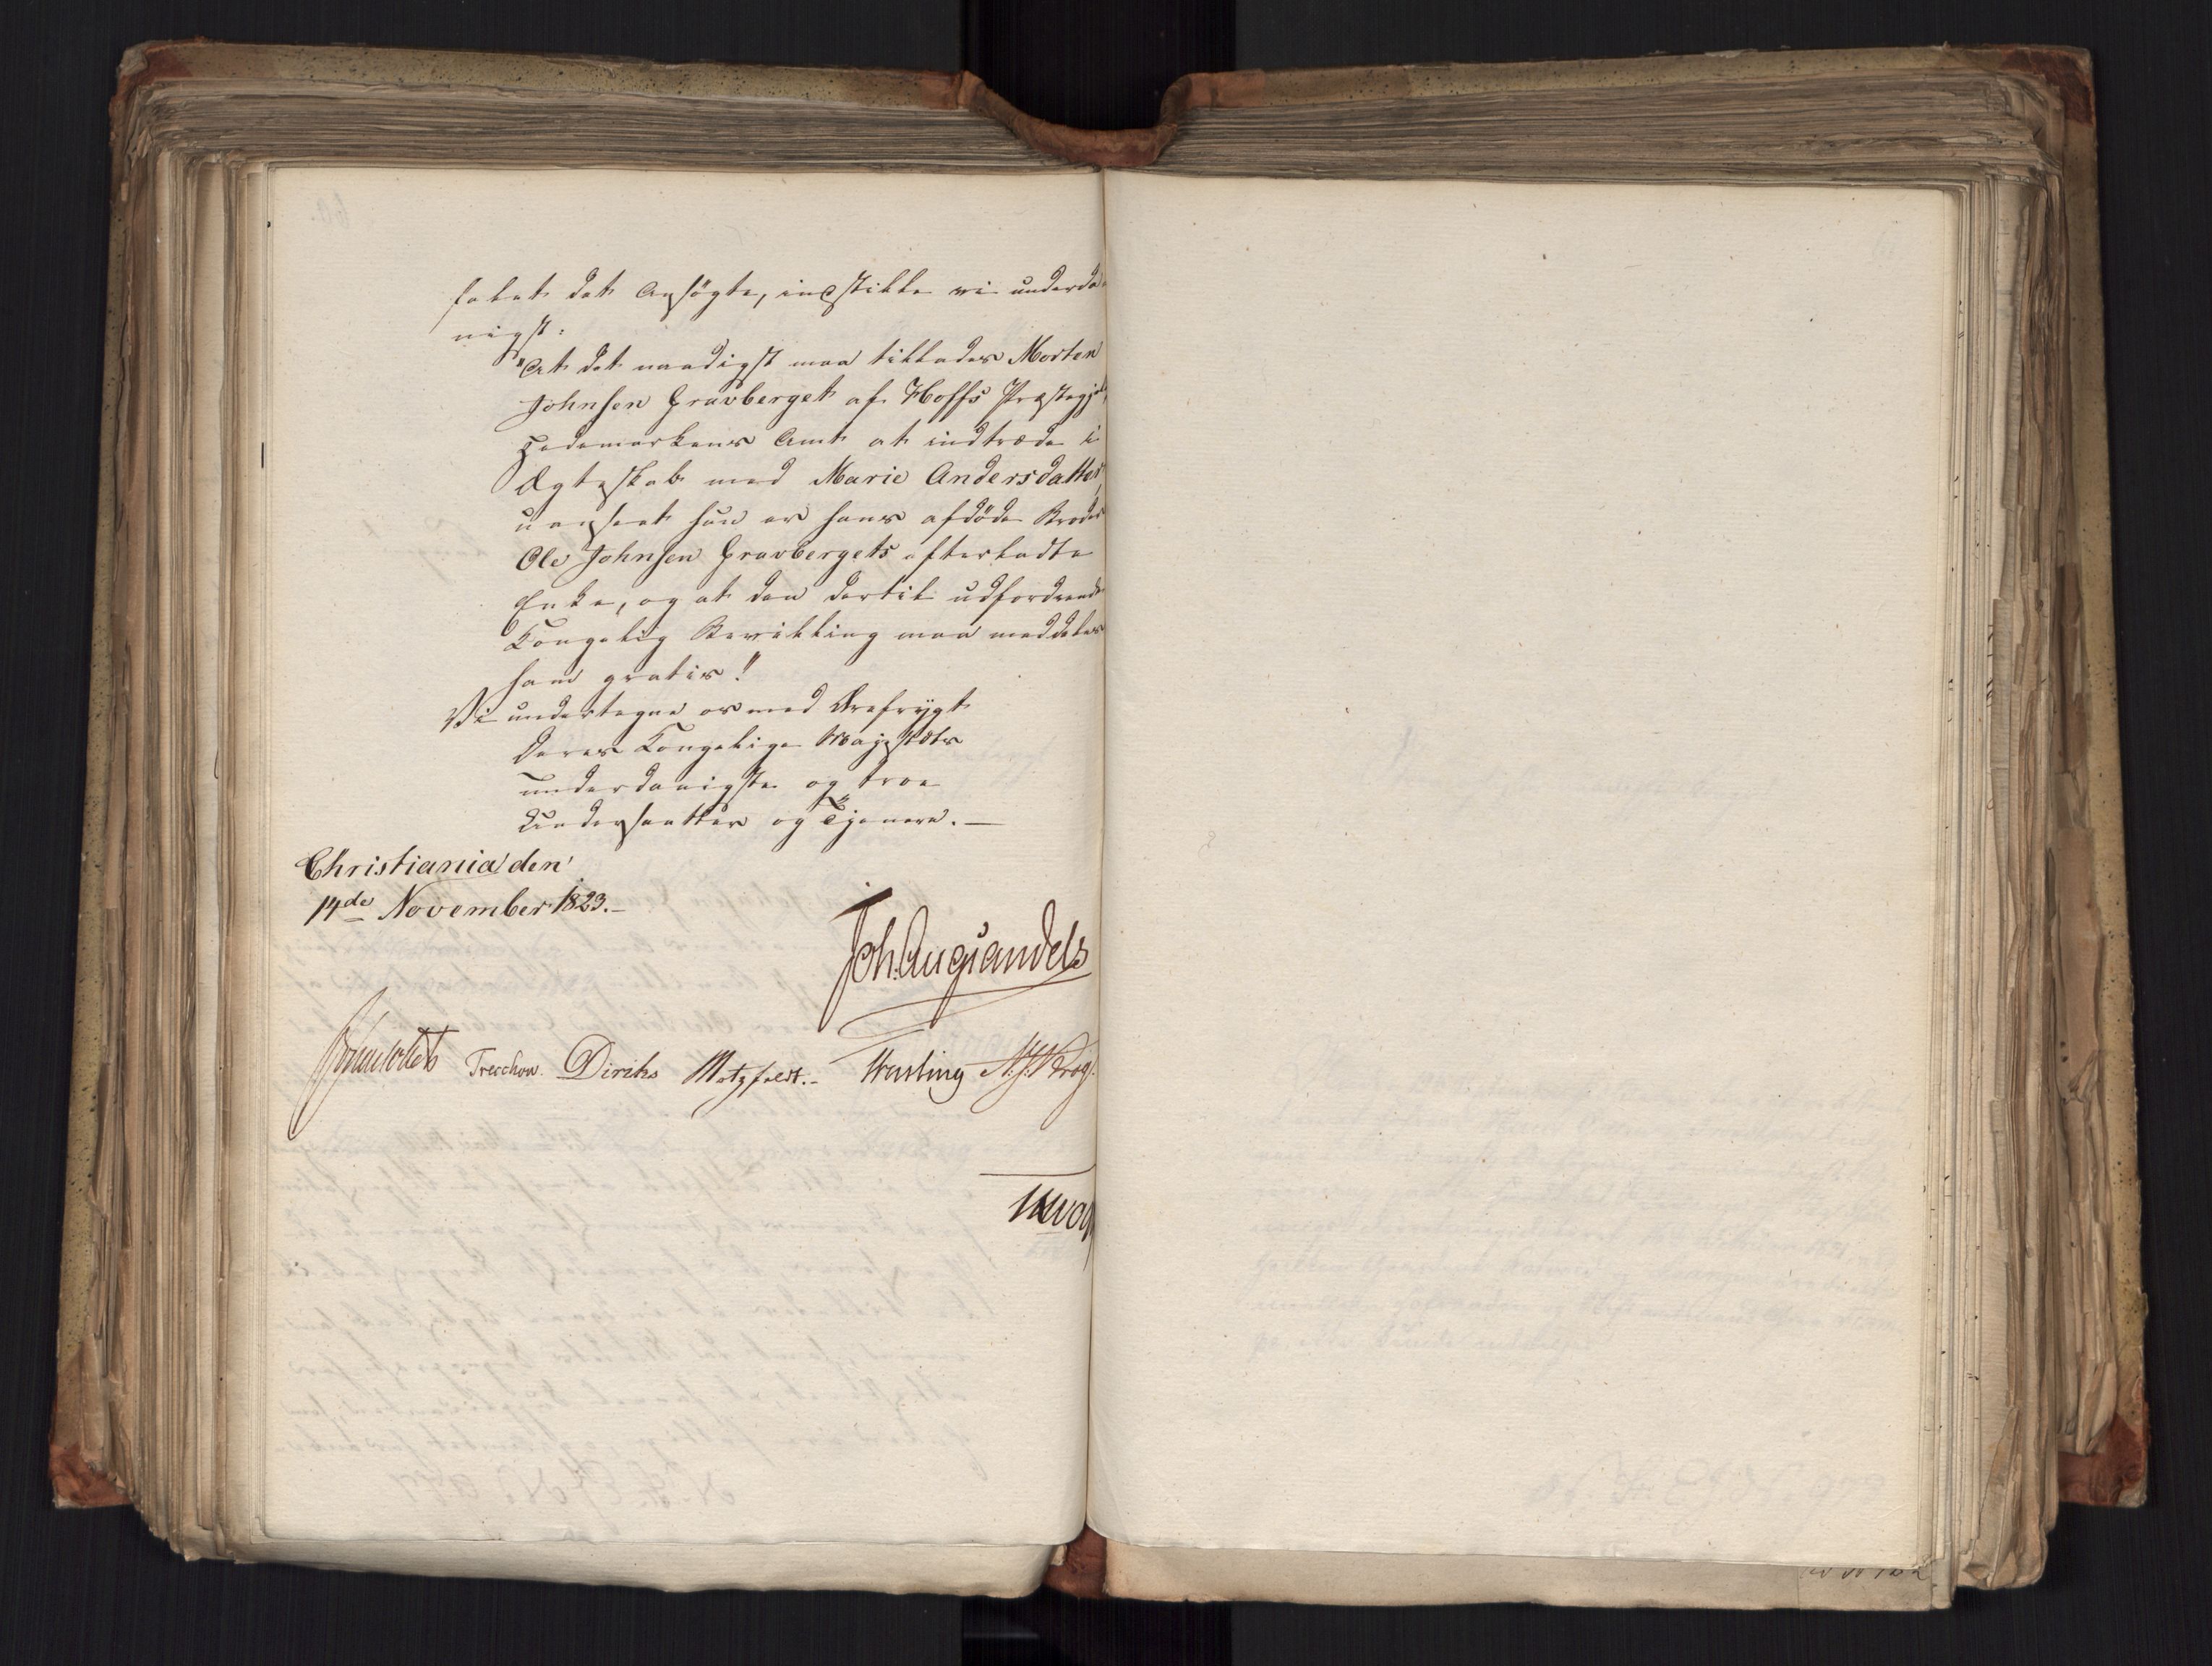 falet det Ansøgte, indstille vi underda
nigst:
"At det naadigst maa tillades Morten
Johnsen Gravberget af Hoffs Præstegjeld,
Hedemarkens Amt at indtræde i
Ægteskab med Marie Andersdatter,
uanseet hun er hans afdøde Broder
Ole Johnsen Gravbergets efterladte
Enke, og at den dertil udfordrende
Kongelig Bevilling maa meddeles
ham gratis!"
Vi undertegne os med Ærefrygt
Deres Kongelige Majestæts
underdanigste og troe
Undersaatter og Tjenere. —
Christiania den
14de November 1823. —
Joh. Aug Sandels
Sommerhielm Treschow. Diriks Motzfeldt. — Fasting N. J. Krog.